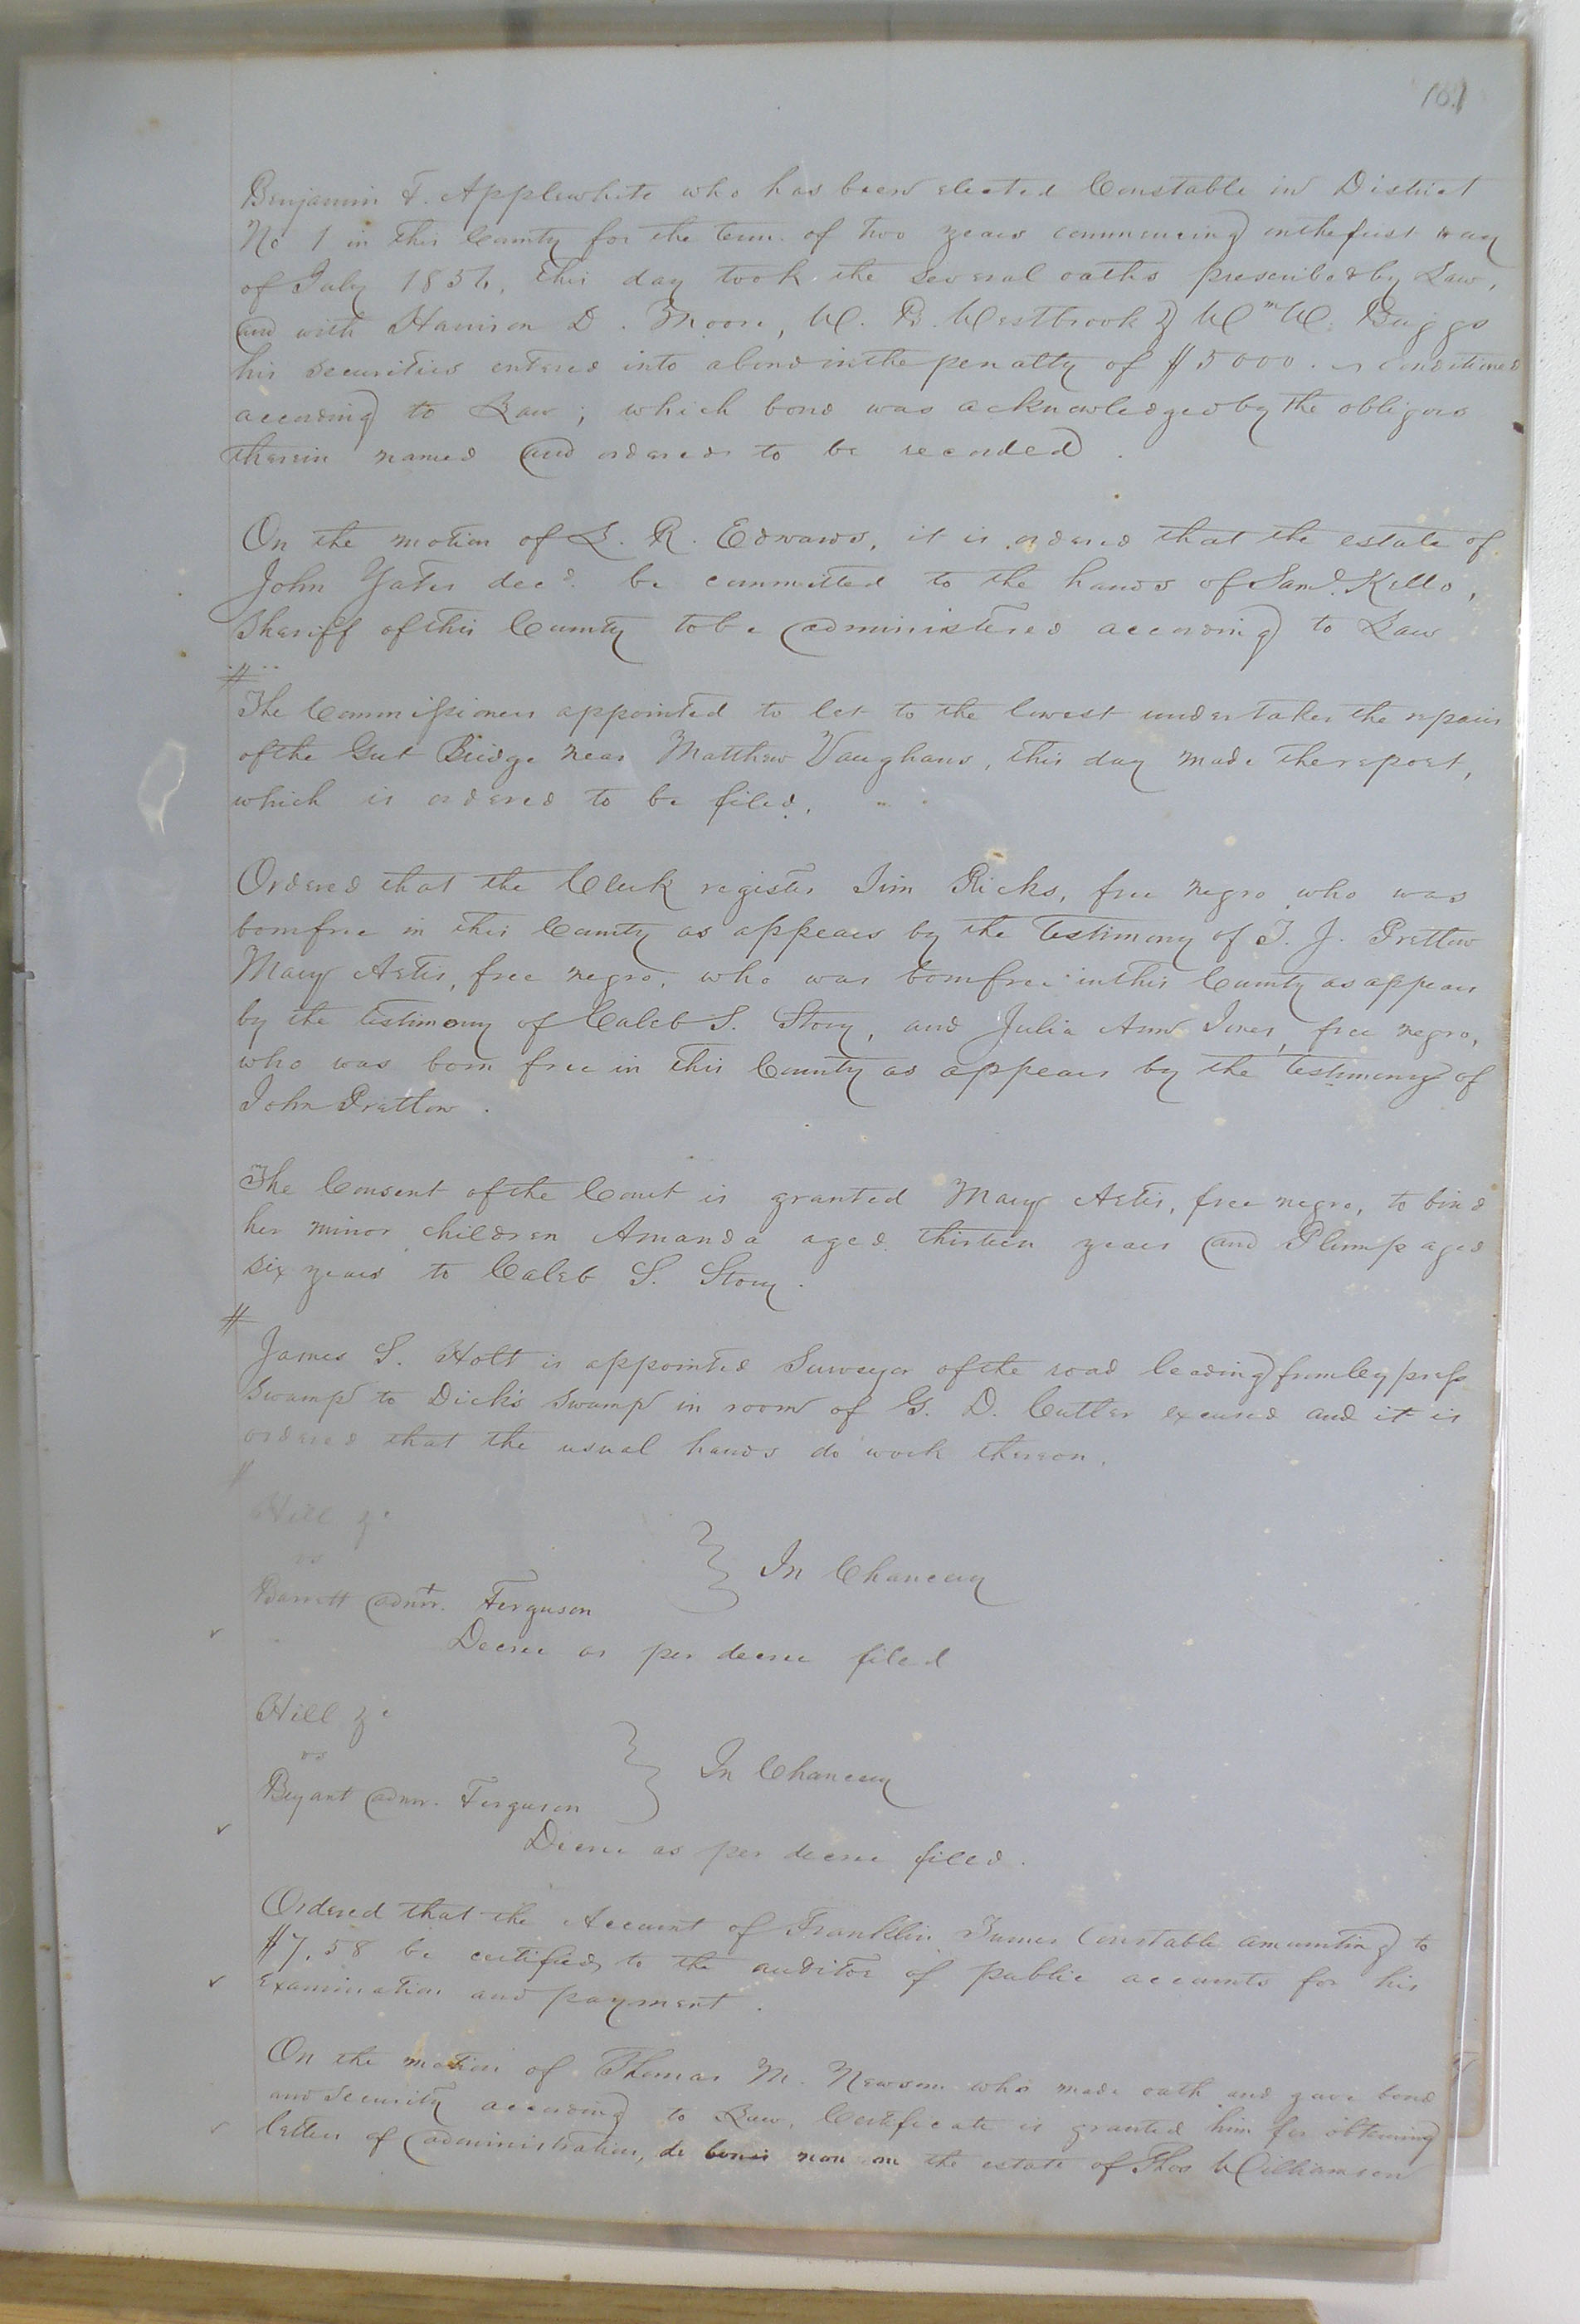 167
Benjamin F. Applewhite who has been elected Constable in District
No 1 in this County for the term of two years commencing on the first day
of July 1856, this day took the several oaths prescribed by Law,
and with Harrison D. Moore, W. B. Westbrook & Wm W. Briggs
his securities entered into a bond in the penalty of $5000. conditioned
according to Law; which bond was acknowledged by the obligors
therein named and ordered to be recorded.
On the motion of L. R. Edwards, it is ordered that the estate of
John Yates decd. be committed to the hands of Saml. Kello,
Sheriff of this County to be administered according to Law
#
The Commissioners appointed to let to the lowest undertaker the repairs
of the Gut Bridge near Matthew Vaughans, this day made the report,
which is ordered to be filed.
Ordered that the Clerk register Jim Ricks, free negro who was
born free in this County as appears by the testimony of T. J. Pretlow
Mary Artis, free negro, who was born free in this County as appears
by the testimony of Caleb S. Story, and Julia Ann Jones, free negro,
who was born free in this County as appears by the testimony of
John Pretlow.
The Consent of the Court is granted Mary Artis, free negro, to bind
her minor children Amanda aged thirteen years and Plump aged
six years to Caleb S. Story.
#
James S. Holt is appointed Surveyor of the road leading from Cypress
Swamp to Dick's Swamp in room of G. D. Cutler excused and it is
ordered that the usual hands do work thereon.
Hill &c
vs
Barrett admr. Ferguson } In Chancery
Decree as per decree filed
Hill &c
vs
Bryant admr. Ferguson } In Chancery
Decree as per decree filed.
Ordered that the Account of Franklin Turner Constable amounting to
$7.58 be certified to the auditor of public accounts for his
examination and payment.
On the motion of Thomas M. Newsom who made oath and gave bond
and security according to Law, Certificate is granted him for obtaining
letters of administration, de bonis non on the estate of Thos Williamson